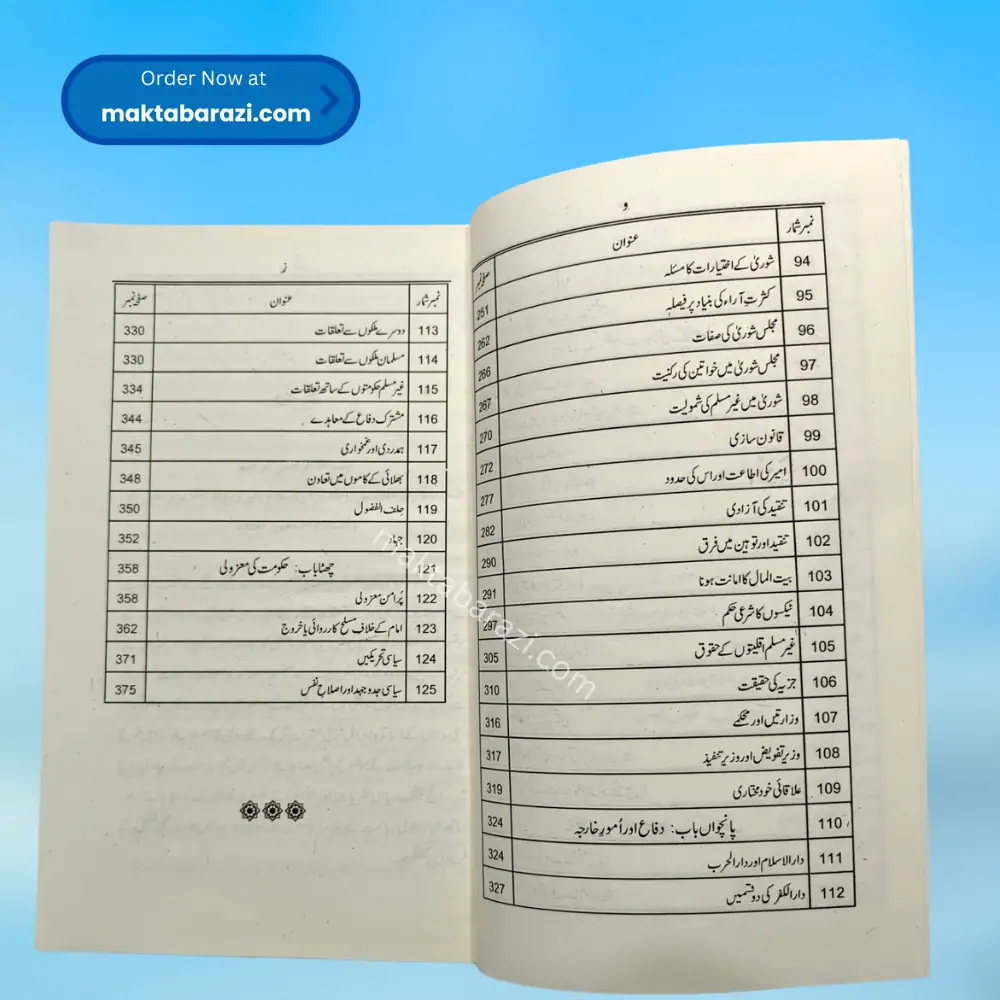 Order Now at
maktabarazi.com
و
نمبر شمار عنوان صفحہ نمبر
94 شوریٰ کے اختیارات کا مسئلہ 251
95 کثرتِ آراء کی بنیاد پر فیصلہ 262
96 مجلس شوریٰ کی صفات 266
97 مجلس شوریٰ میں خواتین کی رکنیت 267
98 شوریٰ میں غیر مسلم کی شمولیت 270
99 قانون سازی 272
100 امیر کی اطاعت اور اس کی حدود 277
101 تنقید کی آزادی 282
102 تنقید اور توہین میں فرق 290
103 بیت المال کا امانت ہونا 291
104 ٹیکسوں کا شرعی حکم 297
105 غیر مسلم اقلیتوں کے حقوق 305
106 جزیہ کی حقیقت 310
107 وزارتیں اور محکمے 316
108 وزیر تفویض اور وزیر تنفیذ 317
109 علاقائی خود مختاری 319
110 پانچواں باب: دفاع اور اُمورِ خارجہ 324
111 دارالاسلام اور دارالحرب 324
112 دارالکفر کی دو قسمیں 327
ز
نمبر شمار عنوان صفحہ نمبر
113 دوسرے ملکوں سے تعلقات 330
114 مسلمان ملکوں سے تعلقات 330
115 غیر مسلم حکومتوں کے ساتھ تعلقات 334
116 مشترک دفاع کے معاہدے 344
117 ہمدردی اور غمخواری 345
118 بھلائی کے کاموں میں تعاون 348
119 حلف الفضول 350
120 جہاد 352
121 چھٹا باب: حکومت کی معزولی 358
122 پُر امن معزولی 358
123 امام کے خلاف مسلح کارروائی یا خروج 362
124 سیاسی تحریکیں 371
125 سیاسی جدوجہد اور اصلاحِ نفس 375
maktabarazi.com